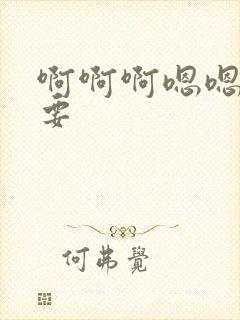 啊啊啊嗯嗯
要
何弗覺